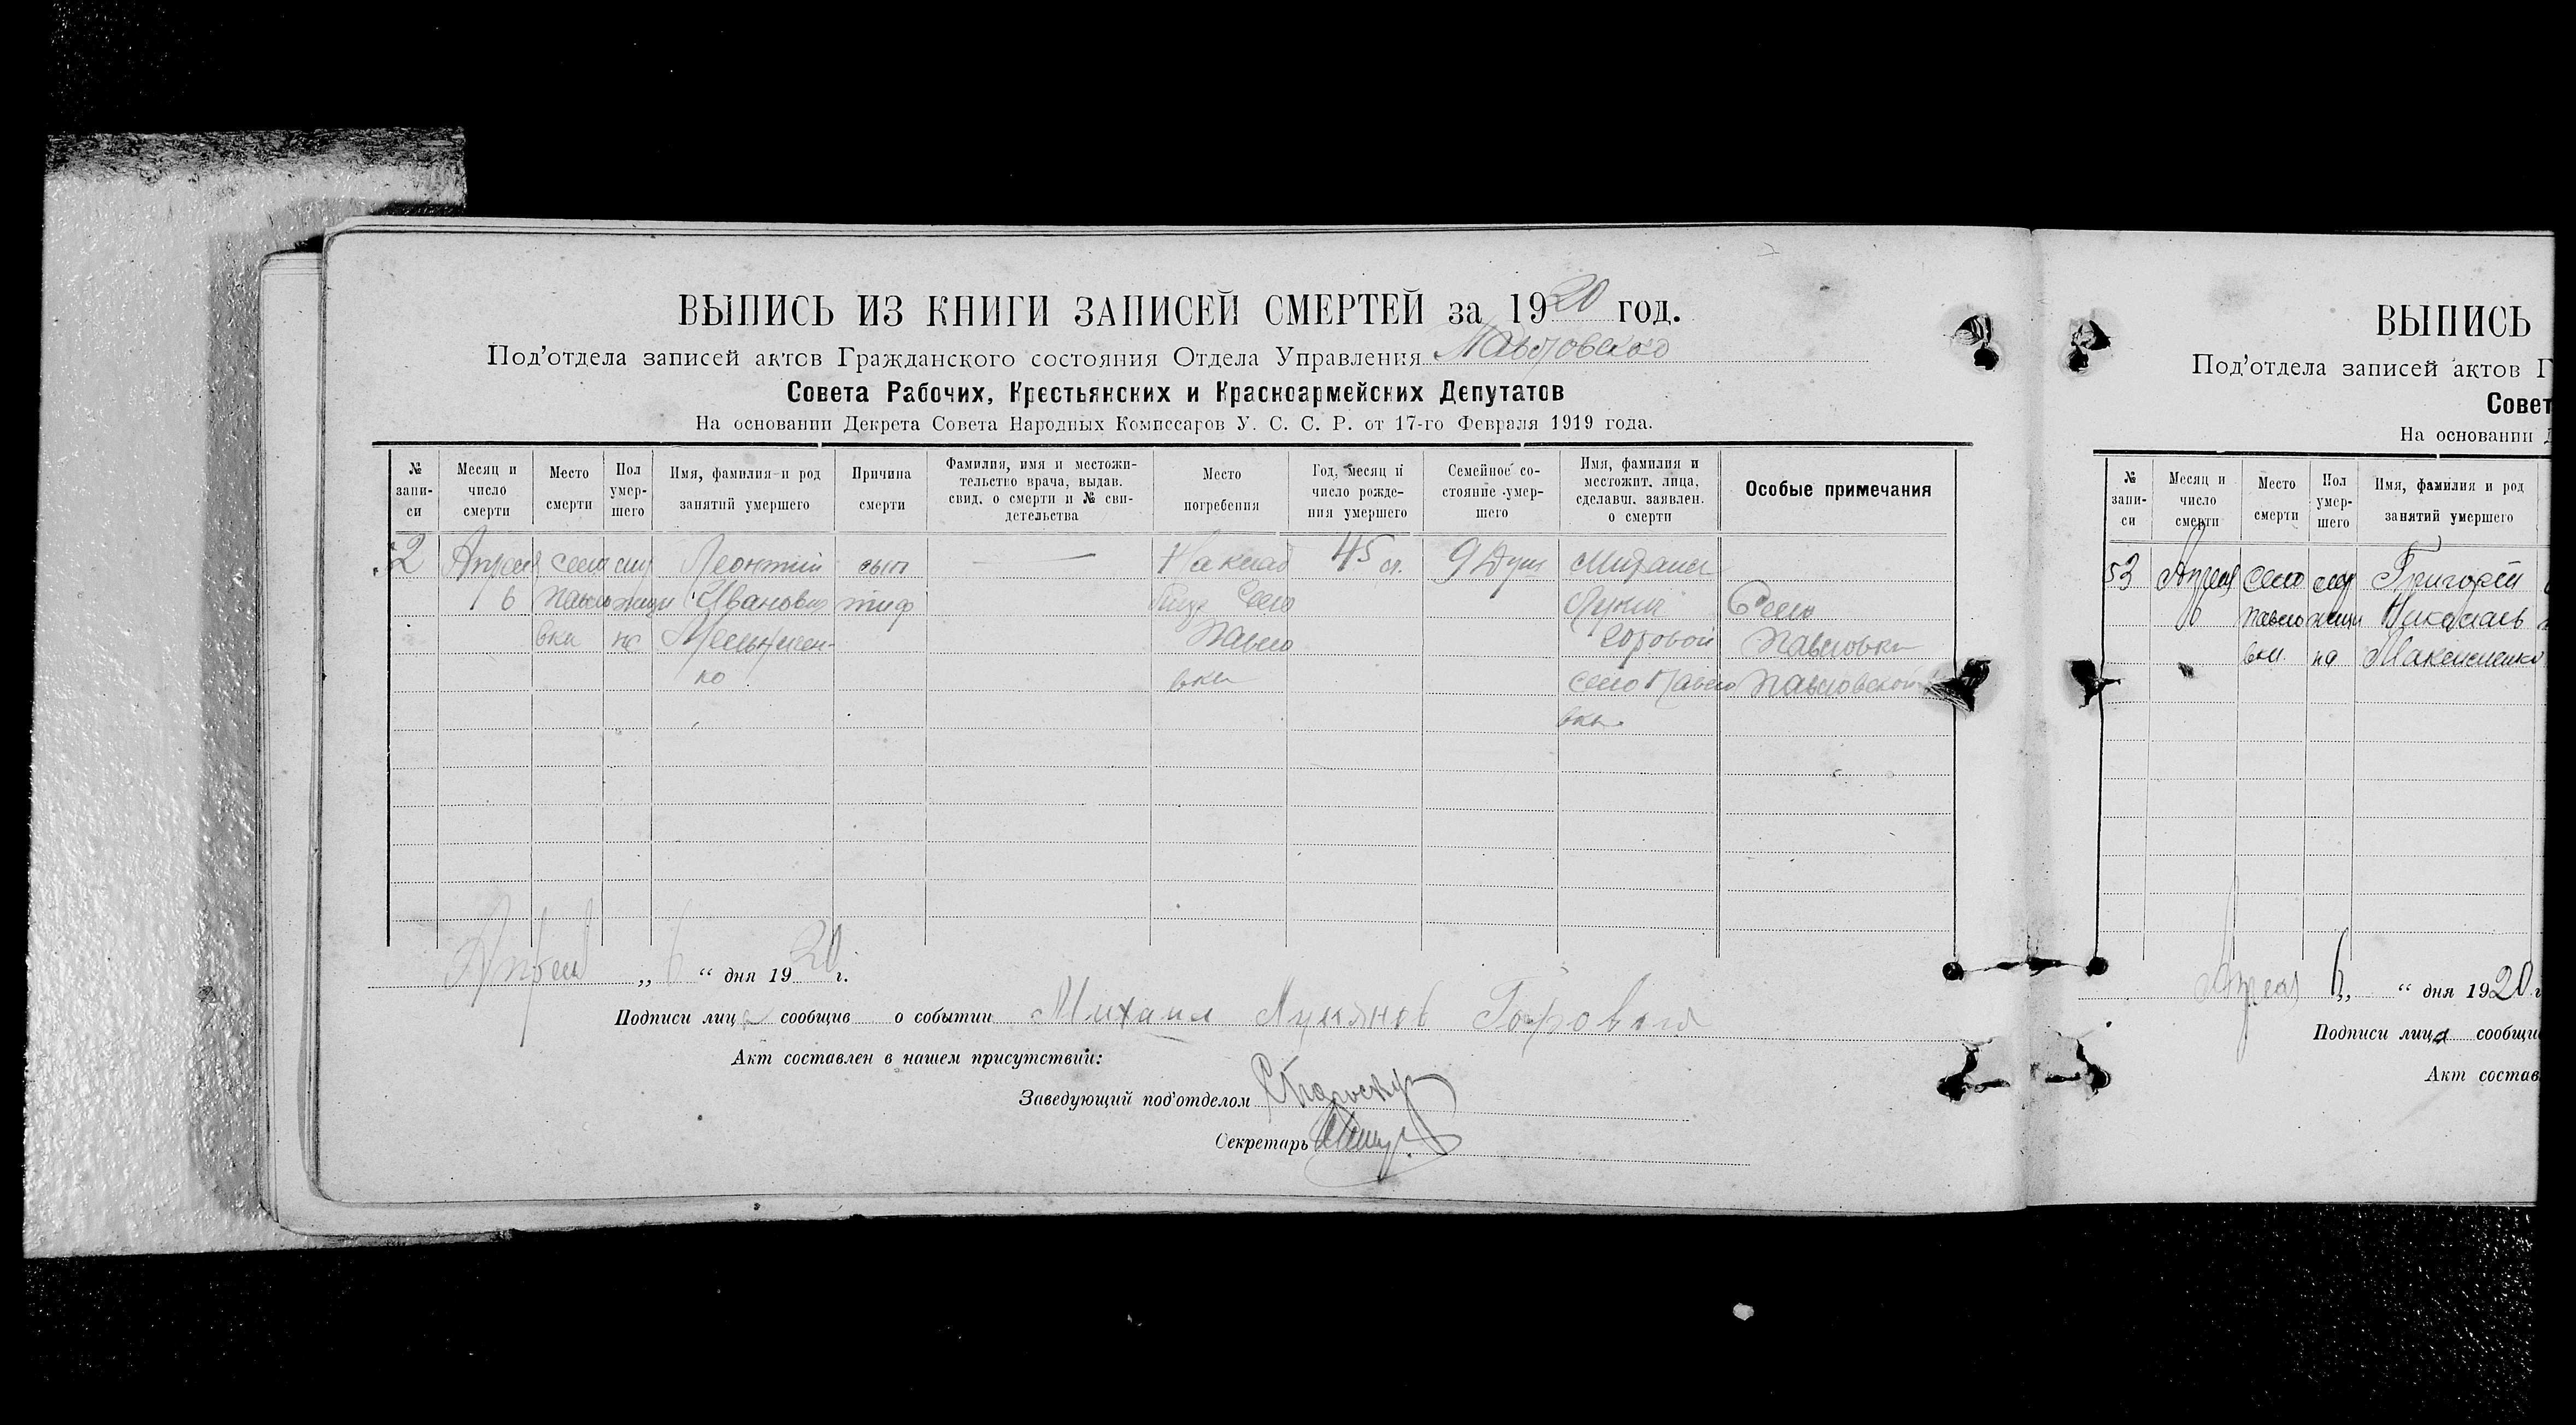 ВЫПИСЬ ИЗ КНИГИ ЗАПИСЕЙ СМЕРТЕЙ за 1920 год.
Под'отдела записей актов Гражданского состояния Отдела Управления Павловского
Совета Рабочих, Крестьянских и Красноармейских Депутатов
На основании Декрета Совета Народных Комиссаров У. С. С. Р. от 17-го Февраля 1919 года.
№ запи-
си
Месяц и
число
смерти
Место
смерти
Пол
умер-
шего
Имя, фамилия и род
занятий умершего
Причина
смерти
Фамилия, имя и местожи-
тельство врача, выдав.
свид. о смерти и № сви-
детельства
Место
погребения
Год, месяц и
число рожде-
ния умершего
Семейное со-
стояние умер-
шего
Имя, фамилия и
местожит. лица,
сделавш. заявлен.
о смерти
Особые примечания
2
Апреля
6
село
Павло
вки
Леонтий
Иванович
Мельничен-
ко
сып
тиф
—
На клад
село
Павло
вки
45 л.
9 душ
село Павло
вки
село
Павловки
Павловской
Апреля „ 6 “ дня 1920 г.
Подписи лица сообщив о событии Михаил Лукянов Горовой
Акт составлен в нашем присутствии:
Заведующий под'отделом
Секретарь
ВЫПИСЬ
Под'отдела записей актов Г
Совет
На основании Д
№
запи-
си
Месяц и
число
смерти
Место
смерти
Пол
умер-
шего
Имя, фамилия и род
занятий умершего
53
Апреля
6
село
Павло
вки
Григорей
Николаев
Максименко
Апреля 6 „ “ дня 1920 г
Подписи лица сообщи
Акт состав